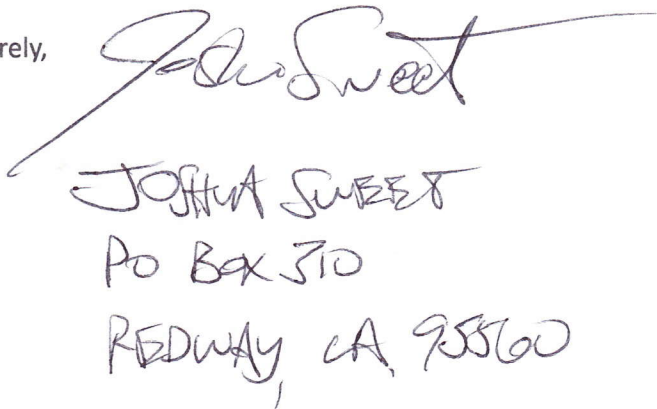 rely,
Josh Sweet
JOSHUA SWEET
PO BOX 310
REDWAY, CA, 95560